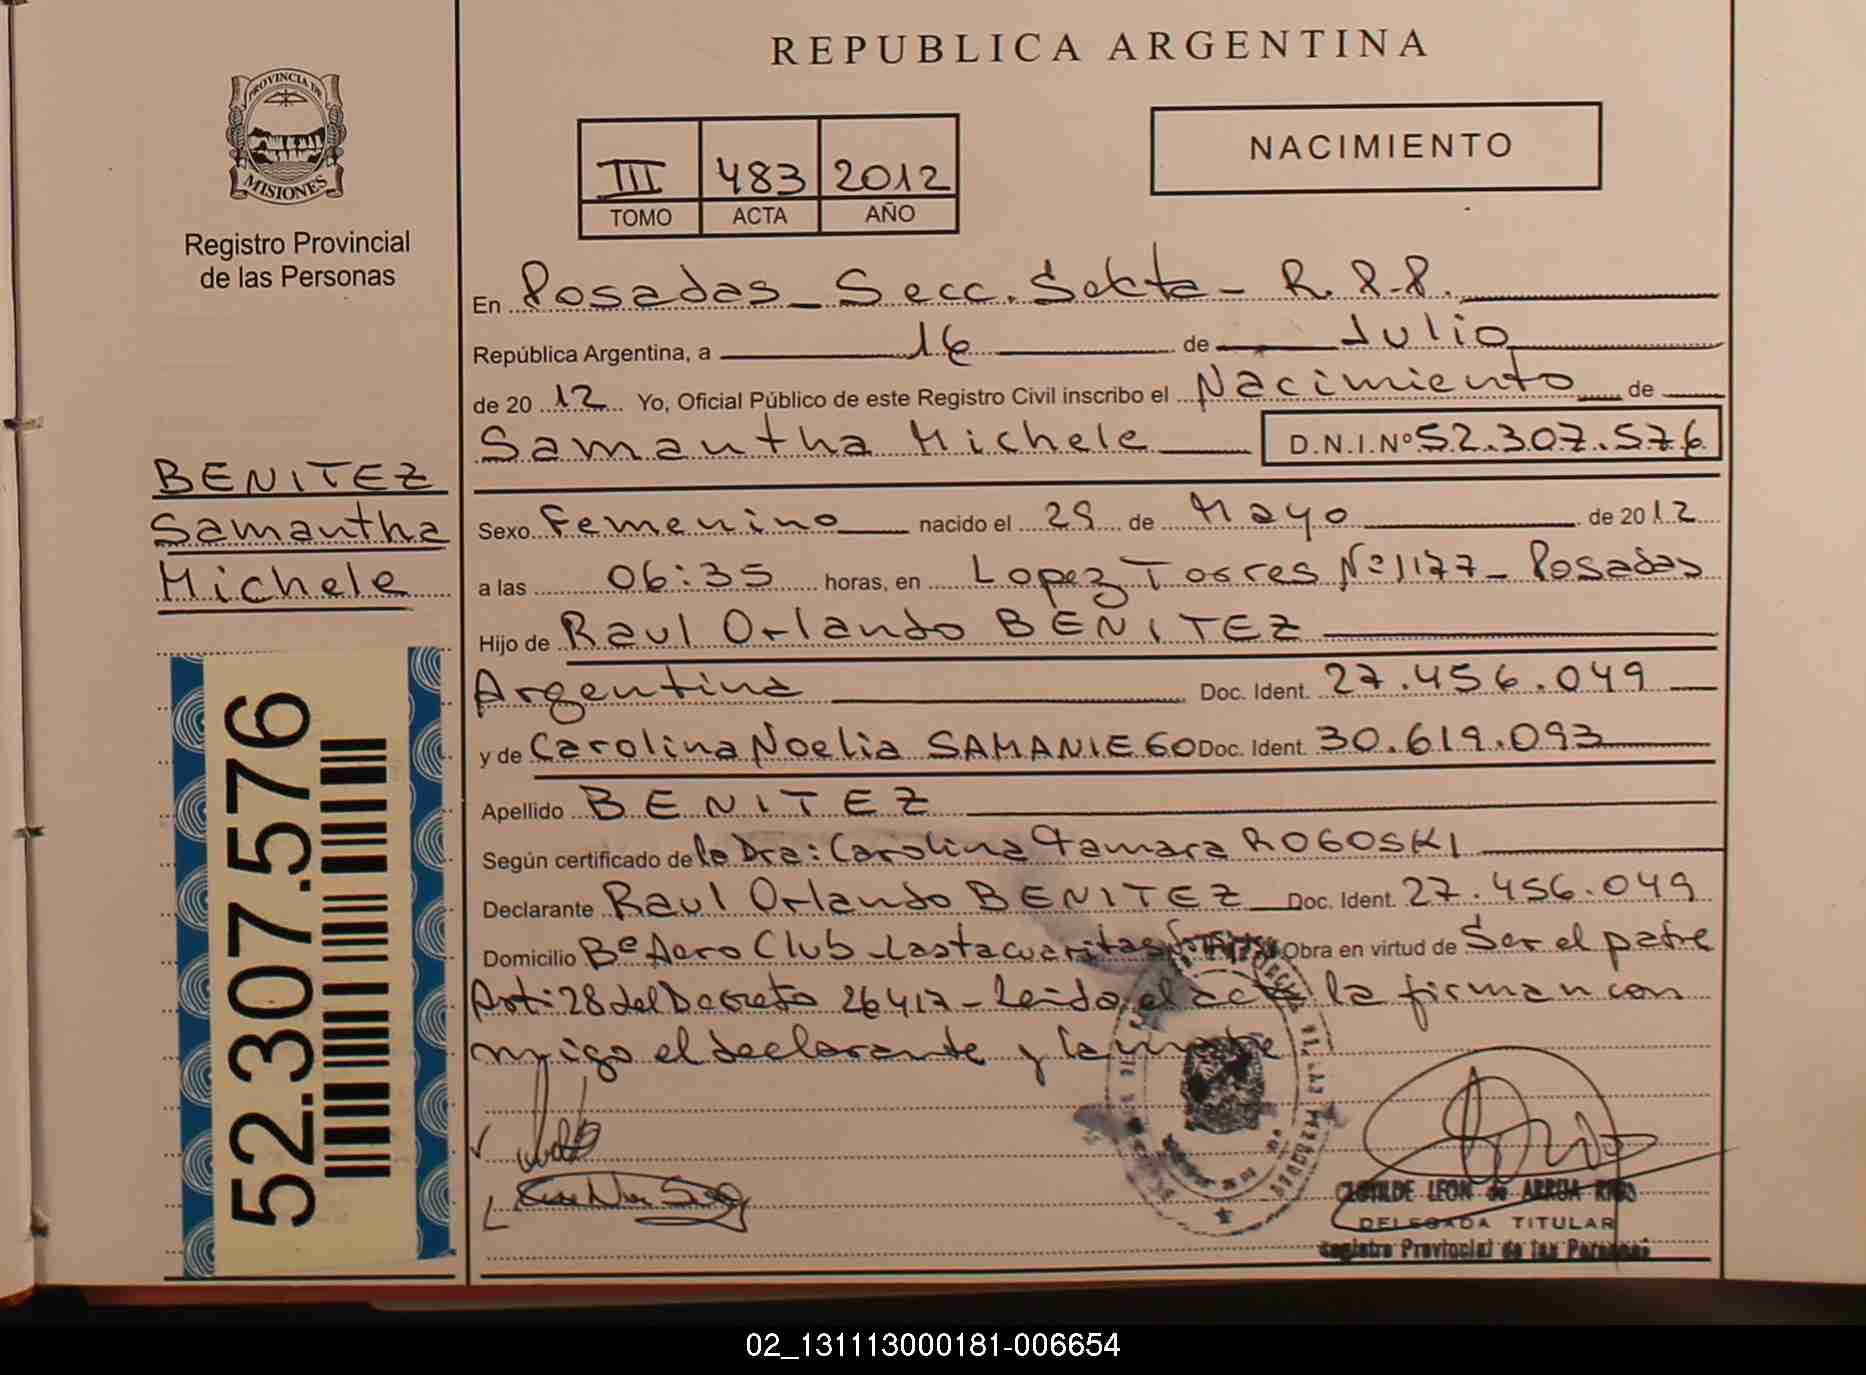 REPUBLICA ARGENTINA
PROVINCIA DE
MISIONES
Registro Provincial
de las Personas
III 483 2012
TOMO ACTA AÑO
NACIMIENTO
En Posadas - Secc. Sexta - R.P.P.
República Argentina, a 16 de Julio
de 2012 Yo, Oficial Público de este Registro Civil inscribo el Nacimiento de
Samantha Michele D.N.I.Nº 52.307.576
BENITEZ
Samantha
Michele
Sexo Femenino nacido el 29 de Mayo de 2012
a las 06:35 horas, en Lopez Torres Nº 1177 - Posadas
Hijo de Raul Orlando BENITEZ
Argentina Doc. Ident. 27.456.049
y de Carolina Noelia SAMANIEGO Doc. Ident. 30.619.093
Apellido BENITEZ
Según certificado de la Dra: Carolina Tamara ROGOSKI
Declarante Raul Orlando BENITEZ Doc. Ident. 27.456.049
Domicilio Bº Aero Club - Las tacuaritas Obra en virtud de Ser el padre
Art: 28 del Decreto 26417 - Leida el acta la firman con
migo el declarante y la madre
52.307.576
CLOTILDE LEON de ARRUA
DELEGADA TITULAR
Registro Provincial de las Personas
02_131113000181-006654